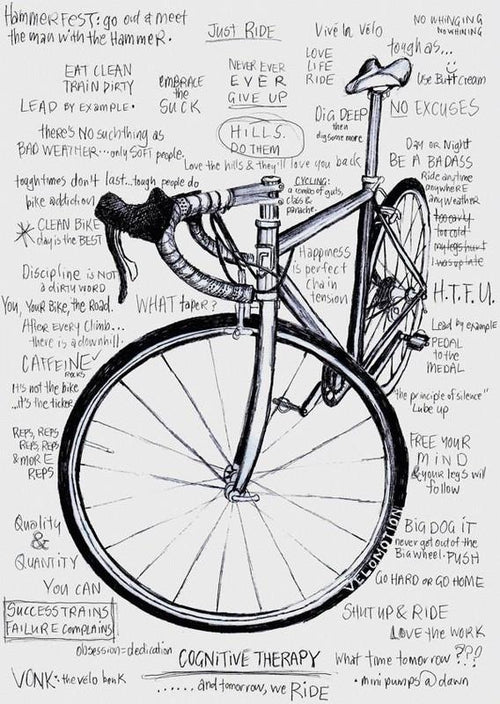 HAMMERFEST: go out & meet
the man with the HAMMER.
JUST RIDE
Vivé la Vélo
NO WHINGING
NOWHINING
EAT CLEAN
TRAIN DIRTY
LEAD BY EXAMPLE.
EMBRACE
the
SUCK
NEVER EVER
EVER
GIVE UP
LOVE
LIFE
RIDE
toughas...
Use Butt Cream
NO EXCUSES
there's NO such thing as
BAD WEATHER...only SOFT people
HILLS.
DO THEM
DIG DEEP
then
dig some more
Love the hills & they'll love you back
Day or Night
BE A BADASS
Ride anytime
anywhere
any weather
too early
too cold
my legs hurt
I was up late
toughtimes don't last...tough people do
bike addiction
CYCLING:
a combo of guts,
class &
panache.
CLEAN BIKE
day is the BEST
Happiness
is perfect
chain
tension
Discipline is NOT
a DIRTY WORD
H.T.F.U.
You, Your Bike, the Road.
WHAT taper?
After Every Climb...
there is a downhill.
Lead by example
PEDAL
to the
MEDAL
CAFFEINE
ROCKS
It's not the bike
..it's the ticker
"the principle of silence"
Lube up
REPS, REPS
REPS, REPS
& MORE
REPS
FREE YOUR
MIND
& your legs will
follow
Quality
&
QUANTITY
BIG DOG iT
never get out of the
Big wheel. PUSH
VELOMOTION
GO HARD OR GO HOME
YOU CAN
SUCCESS TRAINS
FAILURE COMPLAINS
SHUT UP & RIDE
LOVE the WORK
obsession=dedication
COGNITIVE THERAPY
What time tomorrow ???
VONK: the vélo bonk
...... and tomorrow, we RIDE
• mini pumps @ dawn